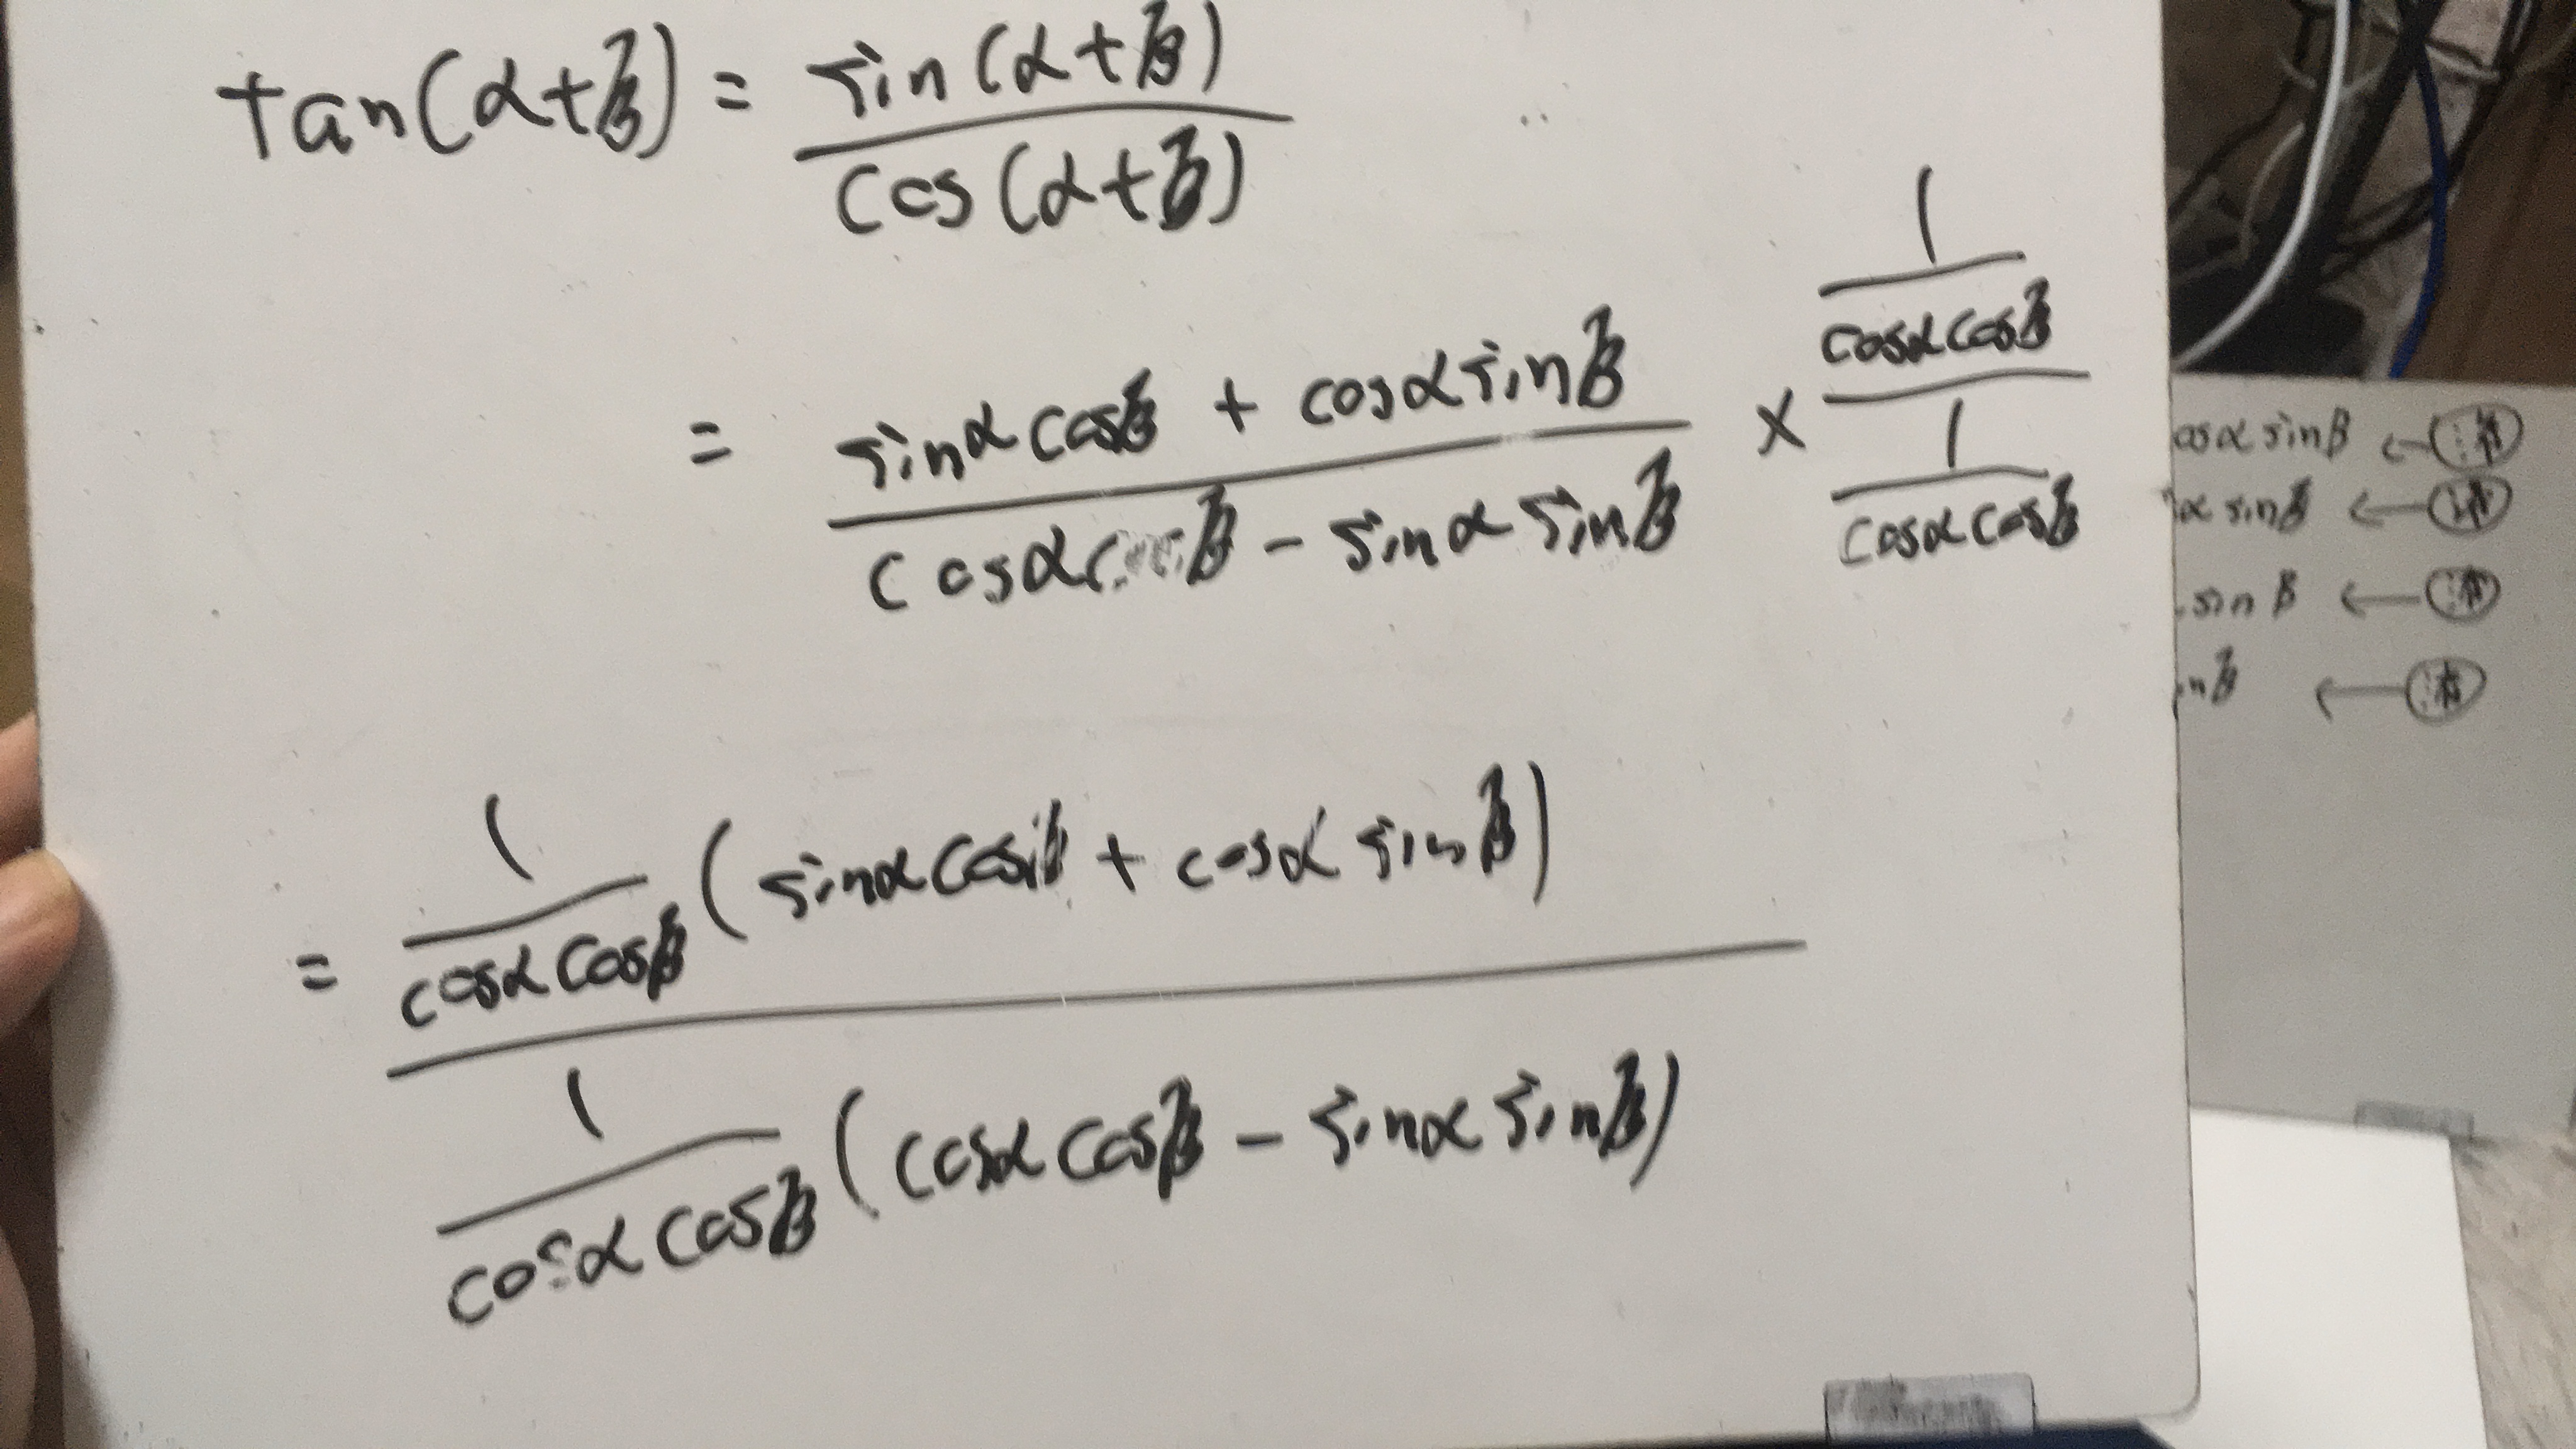 tan(α+β) = sin(α+β) / cos(α+β)
= (sinα cosβ + cosα sinβ) / (cosα cosβ - sinα sinβ) × (1 / (cosα cosβ)) / (1 / (cosα cosβ))
= (1 / (cosα cosβ)) (sinα cosβ + cosα sinβ) / (1 / (cosα cosβ)) (cosα cosβ - sinα sinβ)
osα sinβ ←
α sinβ ←
sinβ ←
inβ ←